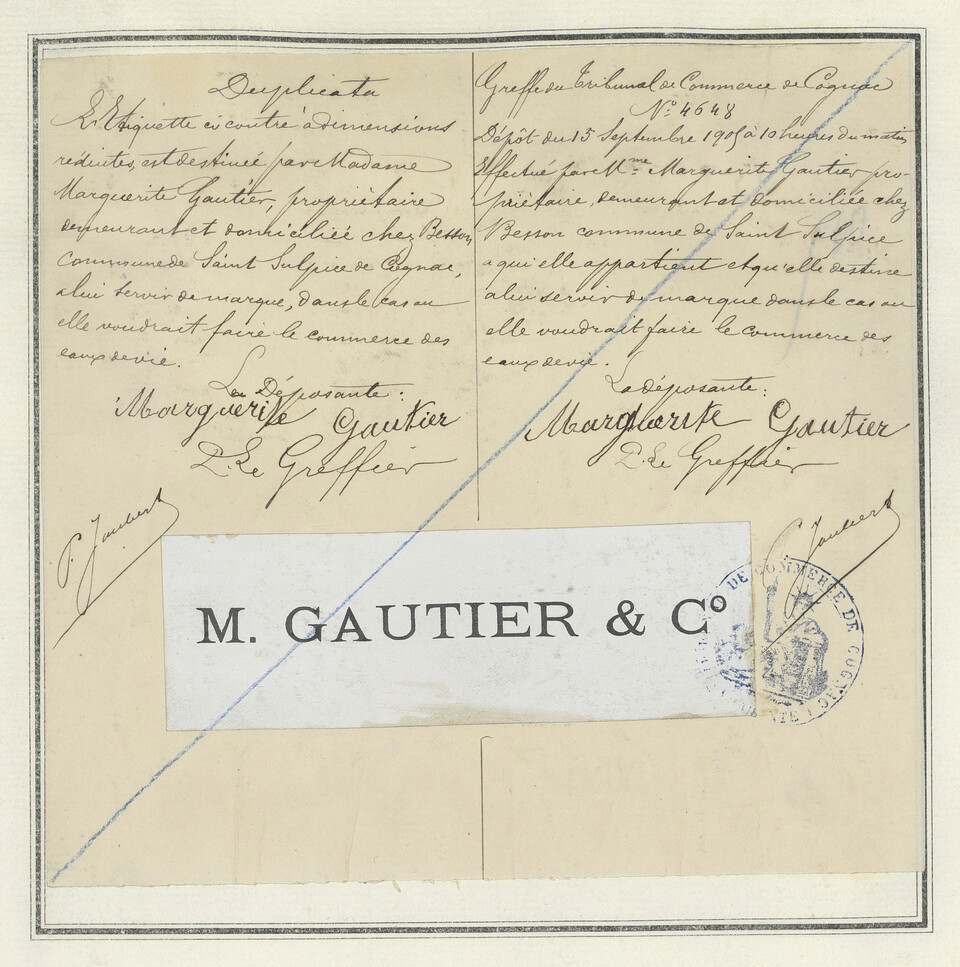 Duplicata
L'Etiquette ci contre à dimensions
réduites, est destinée par Madame
Marguerite Gautier, propriétaire
demeurant et domiciliée chez Besson,
commune de Saint Sulpice de Cognac,
à lui servir de marque, dans le cas où
elle voudrait faire le commerce des
eaux de vie.
La Déposante:
Marguerite Gautier
P. Le Greffier
P. Jaubert
Greffe du Tribunal de Commerce de Cognac
N° 4648
Dépôt du 15 Septembre 1905 à 10 heures du matin
Effectué par Mme Marguerite Gautier pro-
priétaire, demeurant et domiciliée chez
Besson commune de Saint Sulpice
a qui elle appartient et qu'elle destine
à lui servir de marque dans le cas où
elle voudrait faire le commerce des
eaux de vie.
La déposante:
Marguerite Gautier
P. Le Greffier
P. Jaubert
M. GAUTIER & Co
DE COMMERCE DE COGNAC